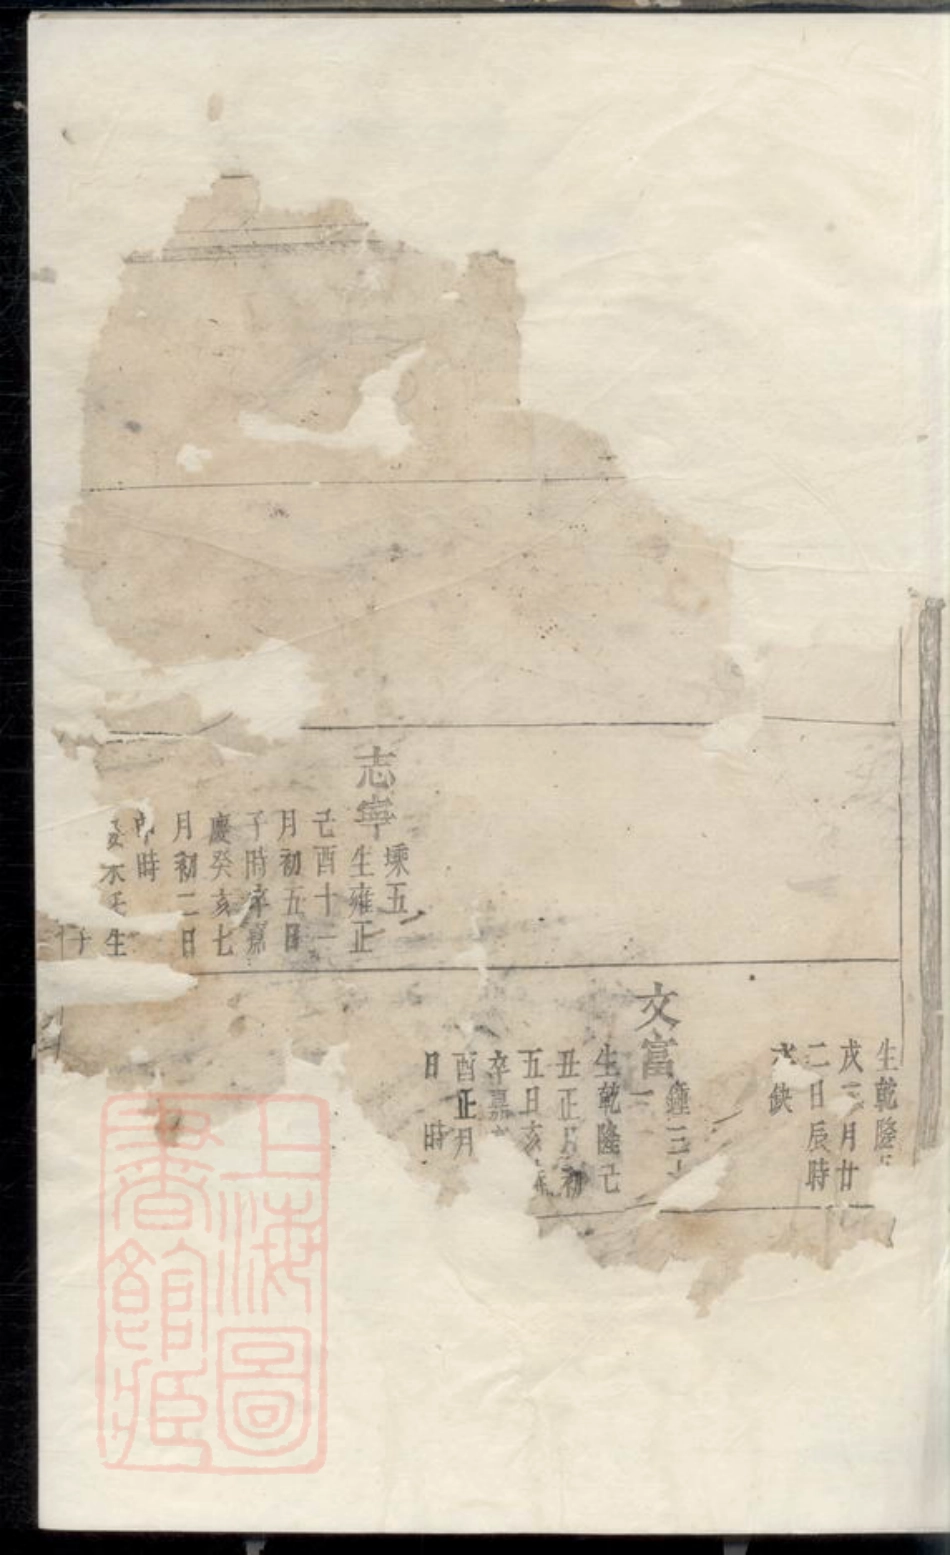 志寧
塛五
生雍正
己酉十一
月初五日
子時卒嘉
慶癸亥七
月初二日
時
生
生乾隆
戌三月廿
二日辰時
缺
文富
鍾三
生乾隆己
丑正月初
五日亥
卒嘉
酉正月
日 時
上海圖
書館藏